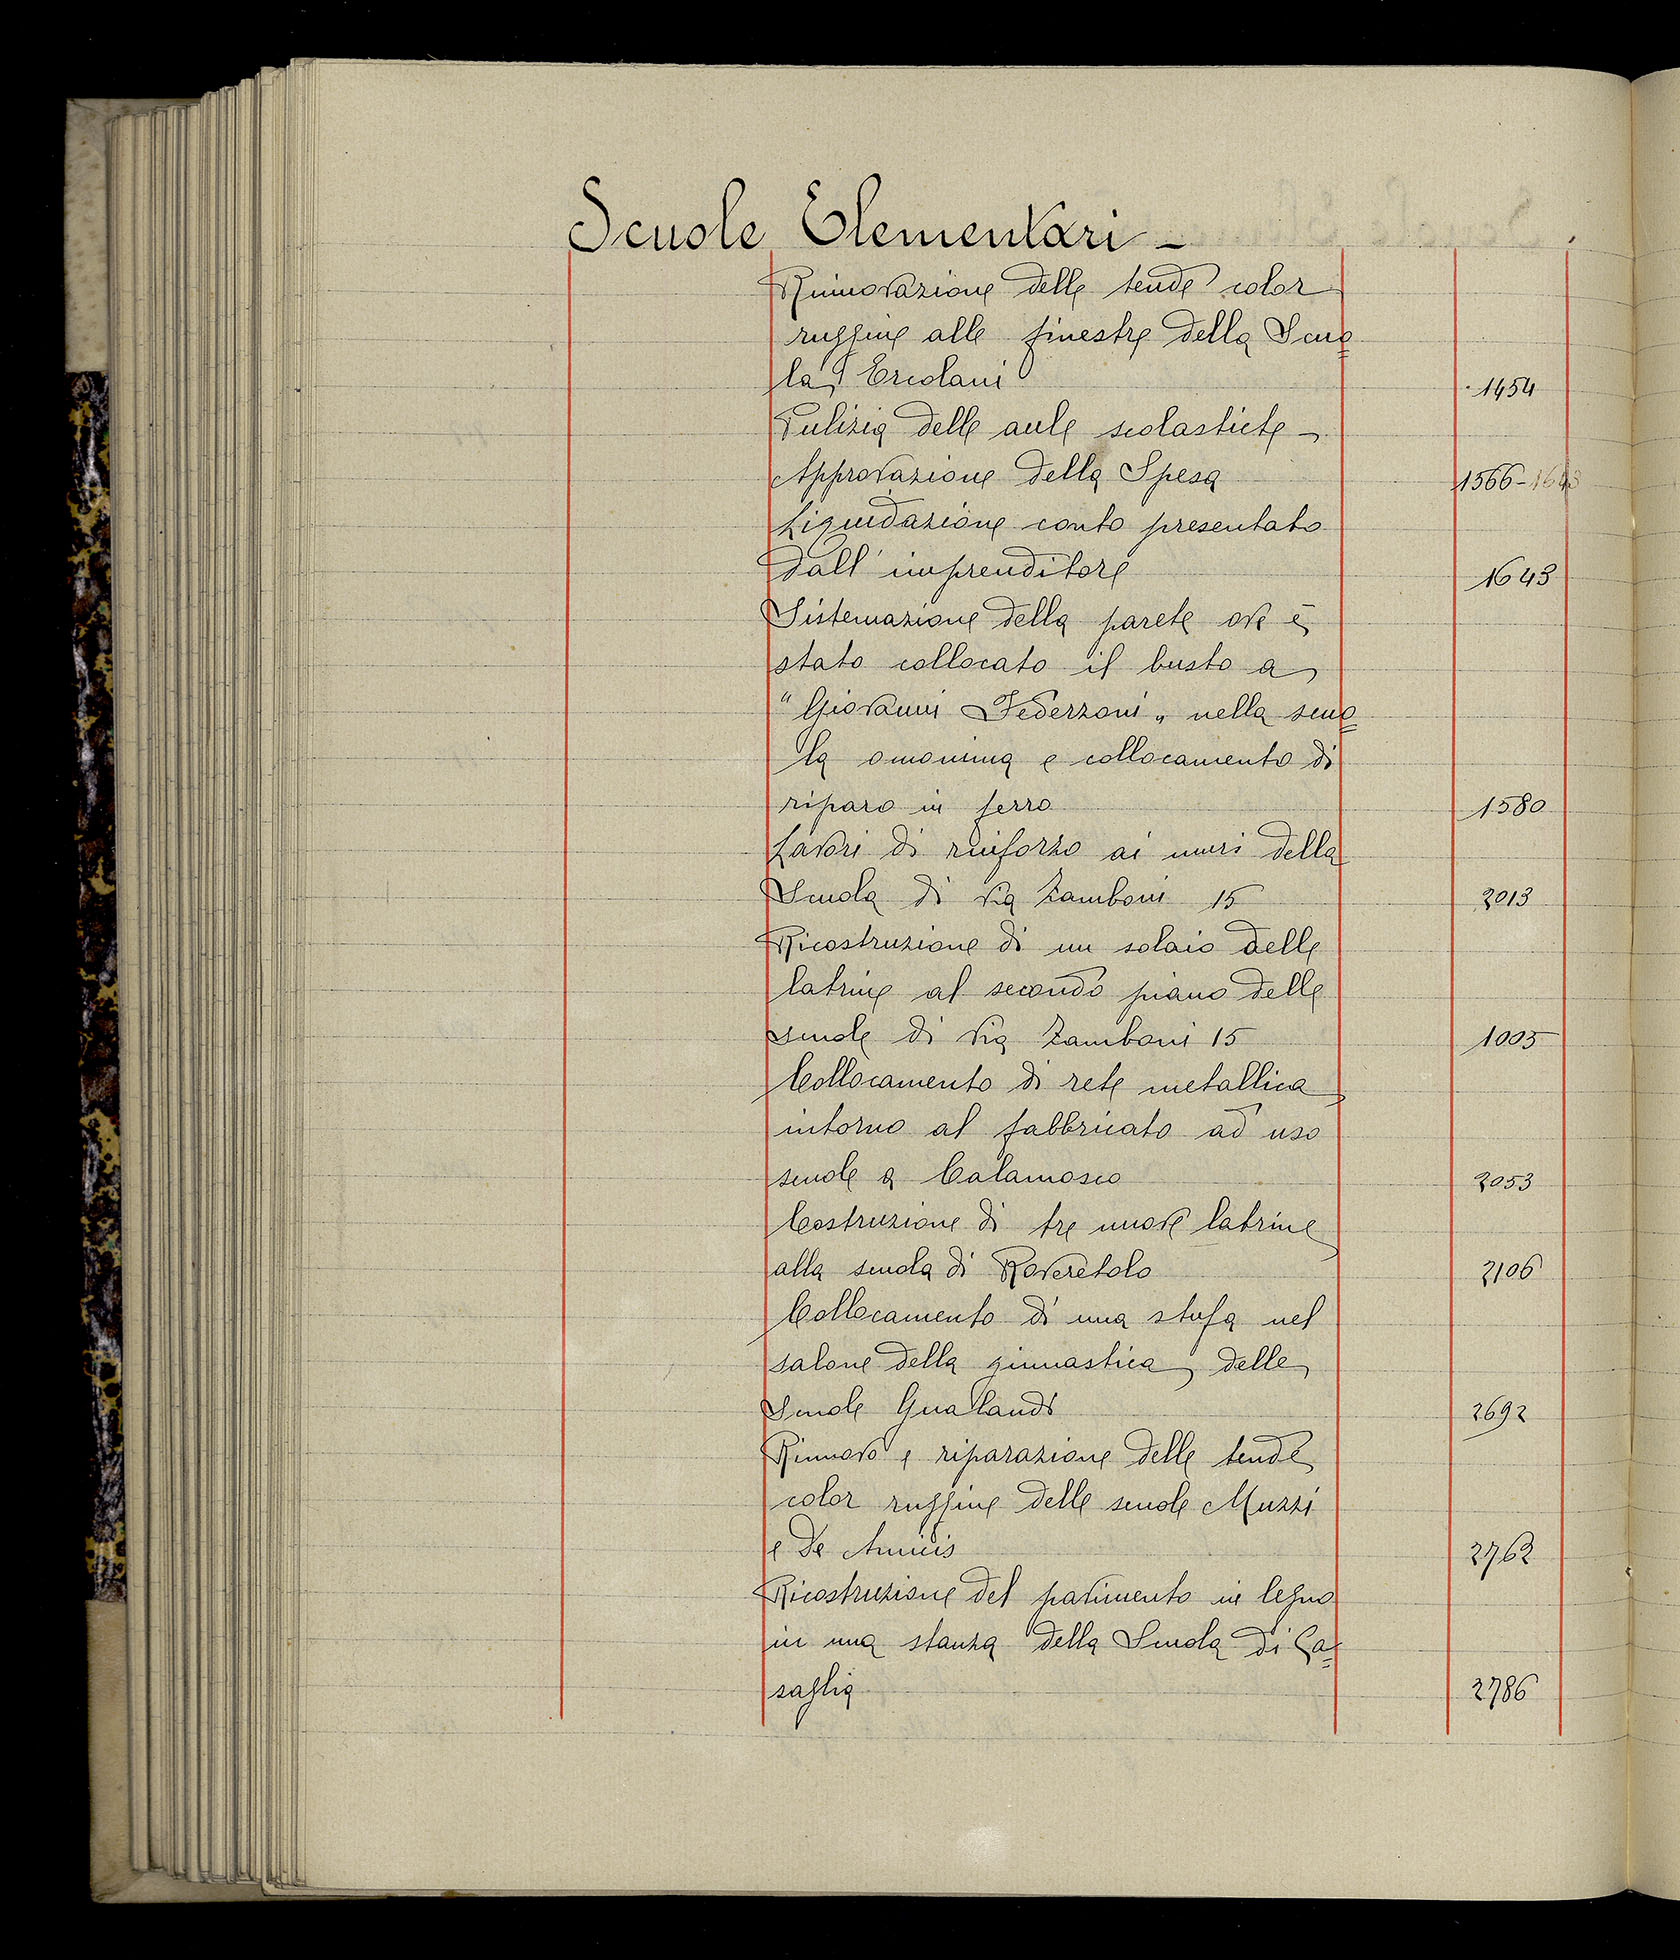 Scuole Elementari -
Rinnovazione delle tende color
ruggine alle finestre della Scuo=
la Ercolani 1454
Pulizia delle aule scolastiche -
Approvazione della Spesa 1566-1643
Liquidazione conto presentato
dall'imprenditore 1643
Sistemazione della parete ove è
stato collocato il busto a
"Giovanni Federzoni" nella scuo=
la omonima e collocamento di
riparo in ferro 1580
Lavori di rinforzo ai muri della
Scuola di via Zamboni 15 2013
Ricostruzione di un solaio delle
latrine al secondo piano delle
scuole di via Zamboni 15 1005
Collocamento di rete metallica
intorno al fabbricato ad uso
scuole a Calamosco 2053
Costruzione di tre nuove latrine
alla scuola di Roveretolo 2106
Collocamento di una stufa nel
salone della ginnastica delle
Scuole Gualandi 2692
Rinnovo e riparazione delle tende
color ruggine delle scuole Muzzi
e De Amicis 2762
Ricostruzione del pavimento in legno
in una stanza della Scuola di Ca=
saglia 2786